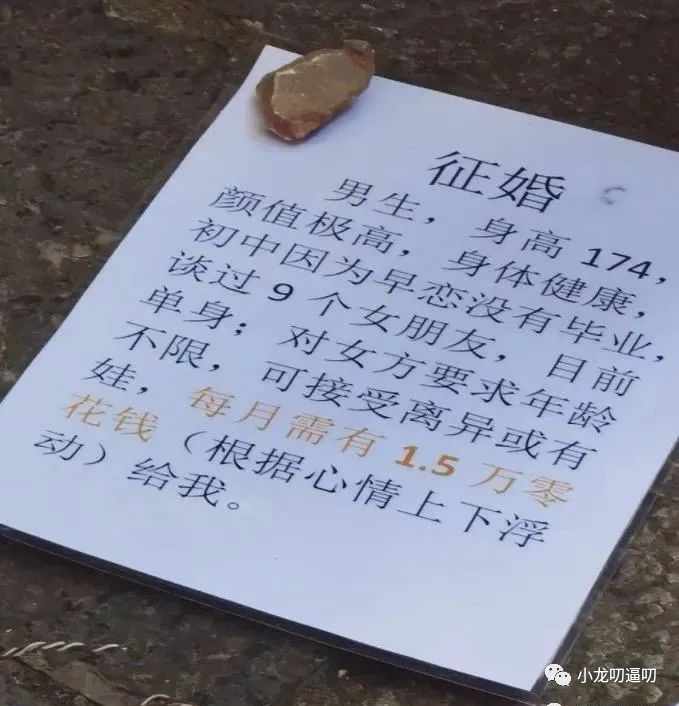 征婚
男生，身高 174，
颜值极高，身体健康，
初中因为早恋没有毕业，
谈过 9 个女朋友，目前
单身；对女方要求年龄
不限，可接受离异或有
娃，每月需有 1.5 万零
花钱（根据心情上下浮
动）给我。
小龙叨逼叨